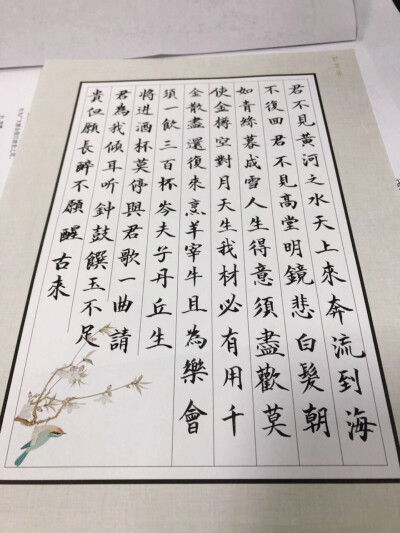 君不見黃河之水天上來奔流到海
不復回君不見高堂明鏡悲白髮朝
如青絲暮成雪人生得意須盡歡莫
使金樽空對月天生我材必有用千
金散盡還復來烹羊宰牛且為樂會
須一飲三百杯岑夫子丹丘生
將进酒杯莫停與君歌一曲請
君為我傾耳听鈡鼓饌玉不足
貴但願長醉不願醒古来